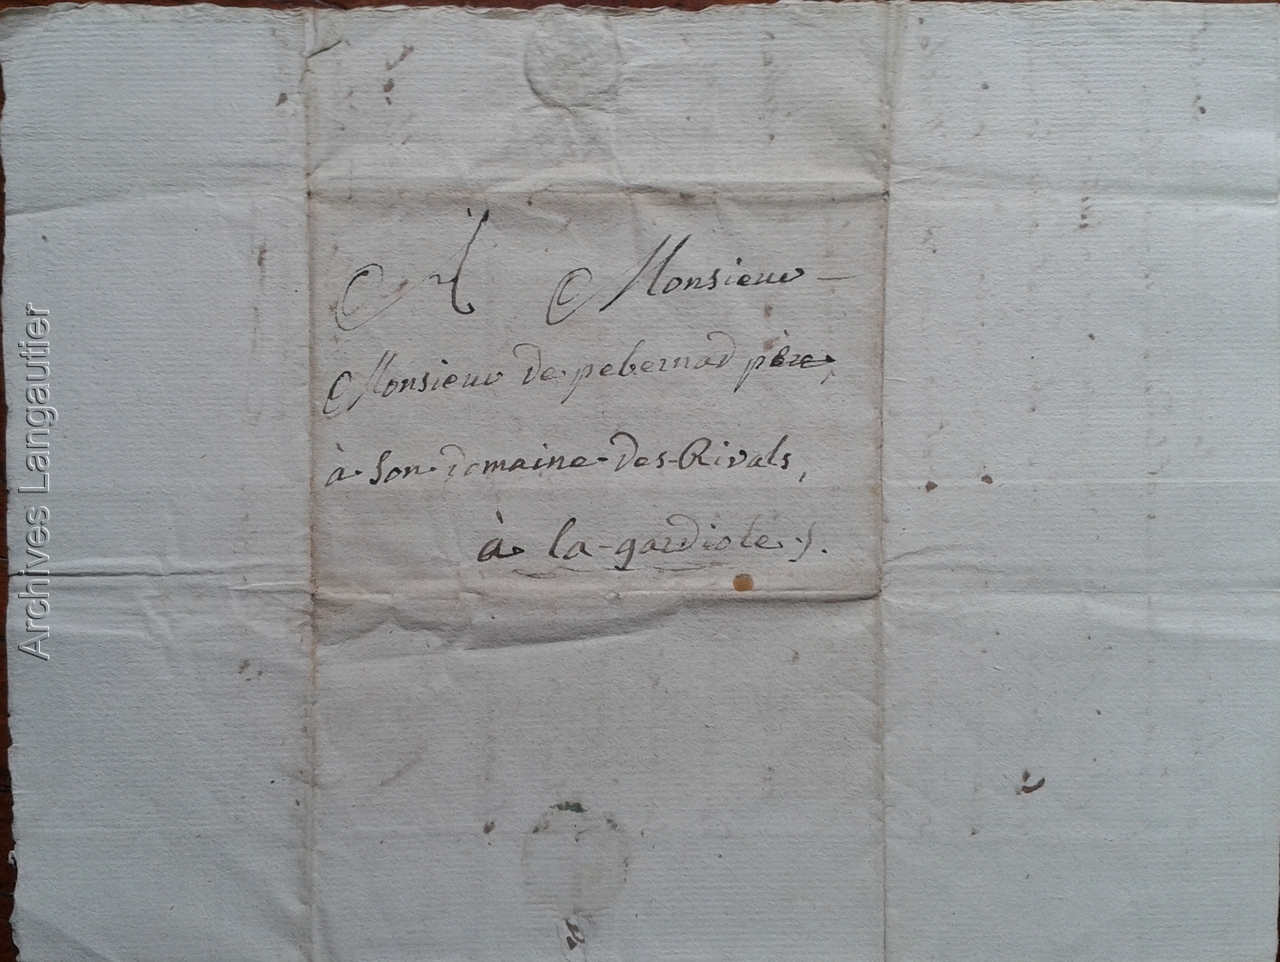 A Monsieur
Monsieur de pebernad père,
à son domaine des Rivals,
à la gardiole.
Archives Langautier